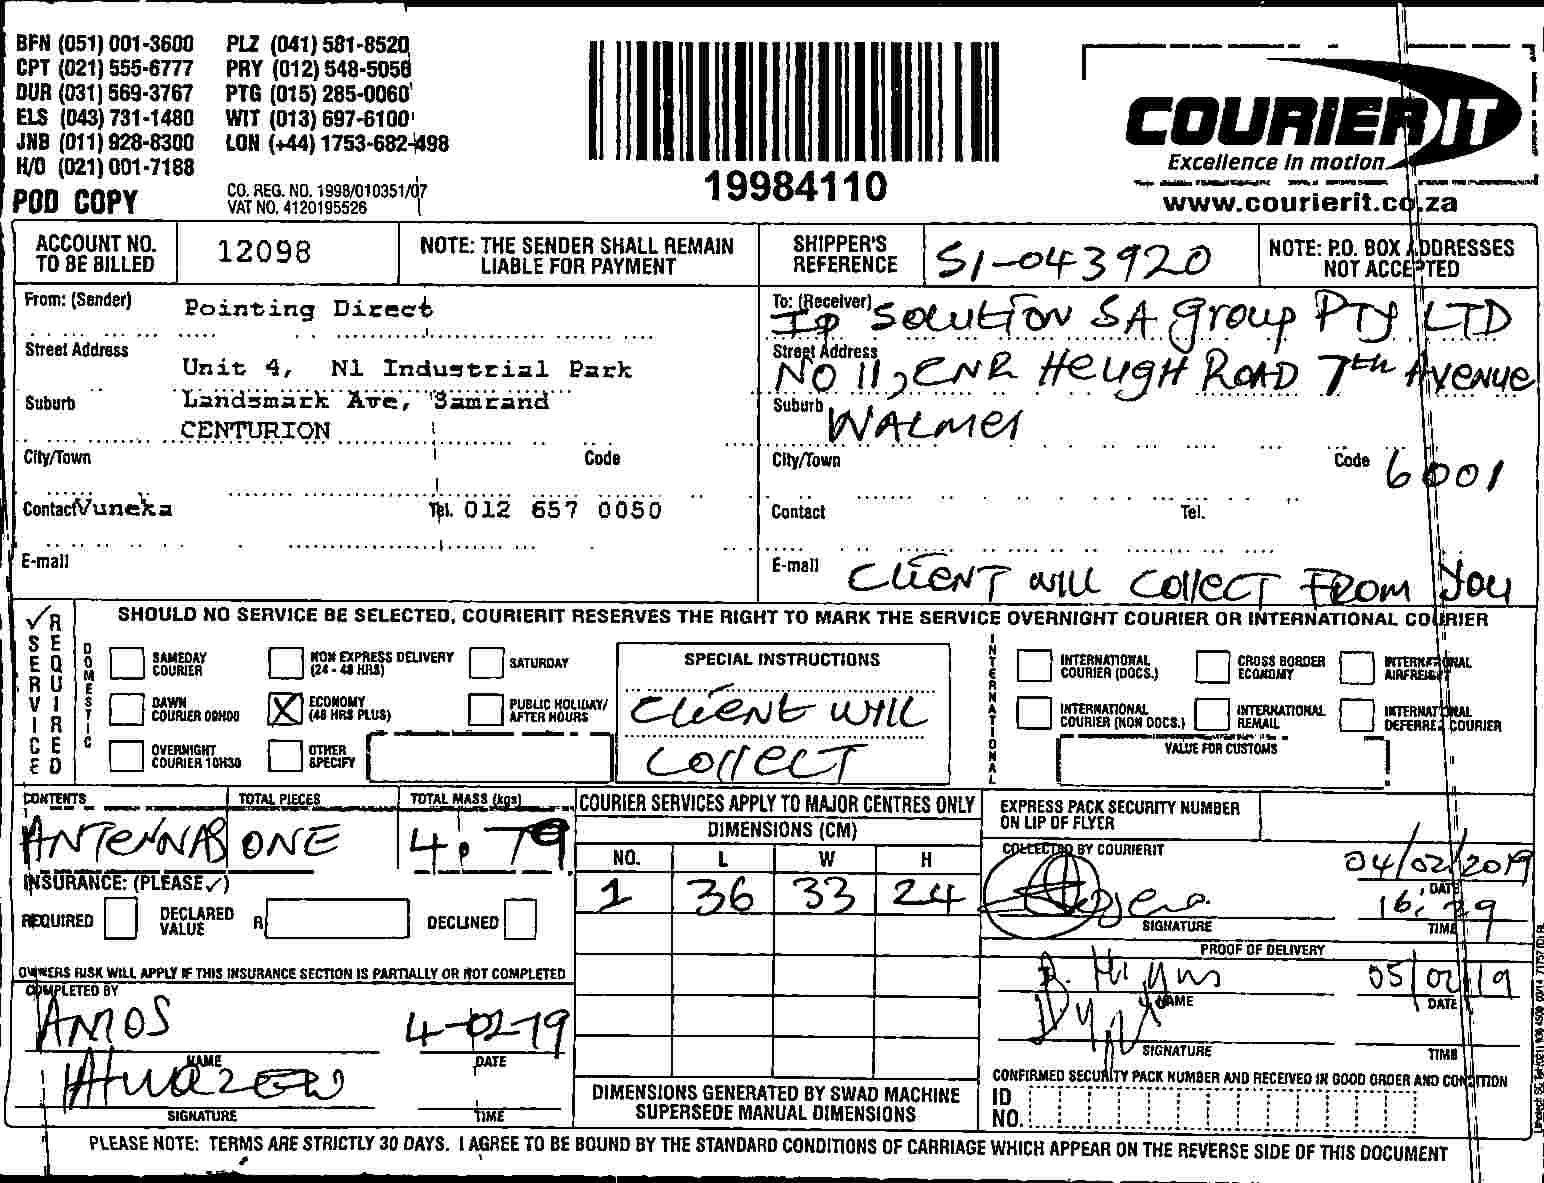 BFN (051) 001-3600 PLZ (041) 581-8520
CPT (021) 555-6777 PRY (012) 548-5056
DUR (031) 569-3767 PTG (015) 285-0060
ELS (043) 731-1480 WIT (013) 697-6100
JNB (011) 928-8300 LON (+44) 1753-682-498
H/O (021) 001-7188
POD COPY
CO. REG. NO. 1998/010351/07
VAT NO. 4120195526
19984110
COURIER IT
Excellence in motion
www.courierit.co.za
ACCOUNT NO. TO BE BILLED
12098
NOTE: THE SENDER SHALL REMAIN LIABLE FOR PAYMENT
SHIPPER'S REFERENCE
SI-043920
NOTE: P.O. BOX ADDRESSES NOT ACCEPTED
From: (Sender) Pointing Direct
Street Address Unit 4, N1 Industrial Park
Suburb Landsmark Ave, Samrand
CENTURION
City/Town Code
Contact Vuneka Tel. 012 657 0050
E-mail
To: (Receiver) IP Solution SA Group PTY LTD
Street Address NO 11, CNR Heugh ROAD 7th Avenue
Suburb WALMER
City/Town Code 6001
Contact Tel.
E-mail CLIENT WILL COLLECT FROM YOU
SERVICE REQUIRED
SHOULD NO SERVICE BE SELECTED, COURIERIT RESERVES THE RIGHT TO MARK THE SERVICE OVERNIGHT COURIER OR INTERNATIONAL COURIER
DOMESTIC
SAMEDAY COURIER
NON EXPRESS DELIVERY (24 - 48 HRS)
SATURDAY
DAWN COURIER 09H00
X ECONOMY (48 HRS PLUS)
PUBLIC HOLIDAY/ AFTER HOURS
OVERNIGHT COURIER 10H30
OTHER SPECIFY
SPECIAL INSTRUCTIONS
CLIENT WILL
COLLECT
INTERNATIONAL
INTERNATIONAL COURIER (DOCS.)
CROSS BORDER ECONOMY
INTERNATIONAL AIRFREIGHT
INTERNATIONAL COURIER (NON DOCS.)
INTERNATIONAL REMAIL
INTERNATIONAL DEFERRED COURIER
VALUE FOR CUSTOMS
CONTENTS TOTAL PIECES TOTAL MASS (kgs)
ANTENNAS ONE 4.79
INSURANCE: (PLEASE ✓)
REQUIRED DECLARED VALUE R DECLINED
OWNERS RISK WILL APPLY IF THIS INSURANCE SECTION IS PARTIALLY OR NOT COMPLETED
COMPLETED BY
AMOS 4-02-19
NAME DATE
SIGNATURE TIME
COURIER SERVICES APPLY TO MAJOR CENTRES ONLY
DIMENSIONS (CM)
NO. L W H
1 36 33 24
DIMENSIONS GENERATED BY SWAD MACHINE SUPERSEDE MANUAL DIMENSIONS
EXPRESS PACK SECURITY NUMBER ON LIP OF FLYER
COLLECTED BY COURIERIT
04/02/2019
DATE
SIGNATURE TIME
PROOF OF DELIVERY
05/02/19
NAME DATE
SIGNATURE TIME
CONFIRMED SECURITY PACK NUMBER AND RECEIVED IN GOOD ORDER AND CONDITION
ID NO.
PLEASE NOTE: TERMS ARE STRICTLY 30 DAYS. I AGREE TO BE BOUND BY THE STANDARD CONDITIONS OF CARRIAGE WHICH APPEAR ON THE REVERSE SIDE OF THIS DOCUMENT